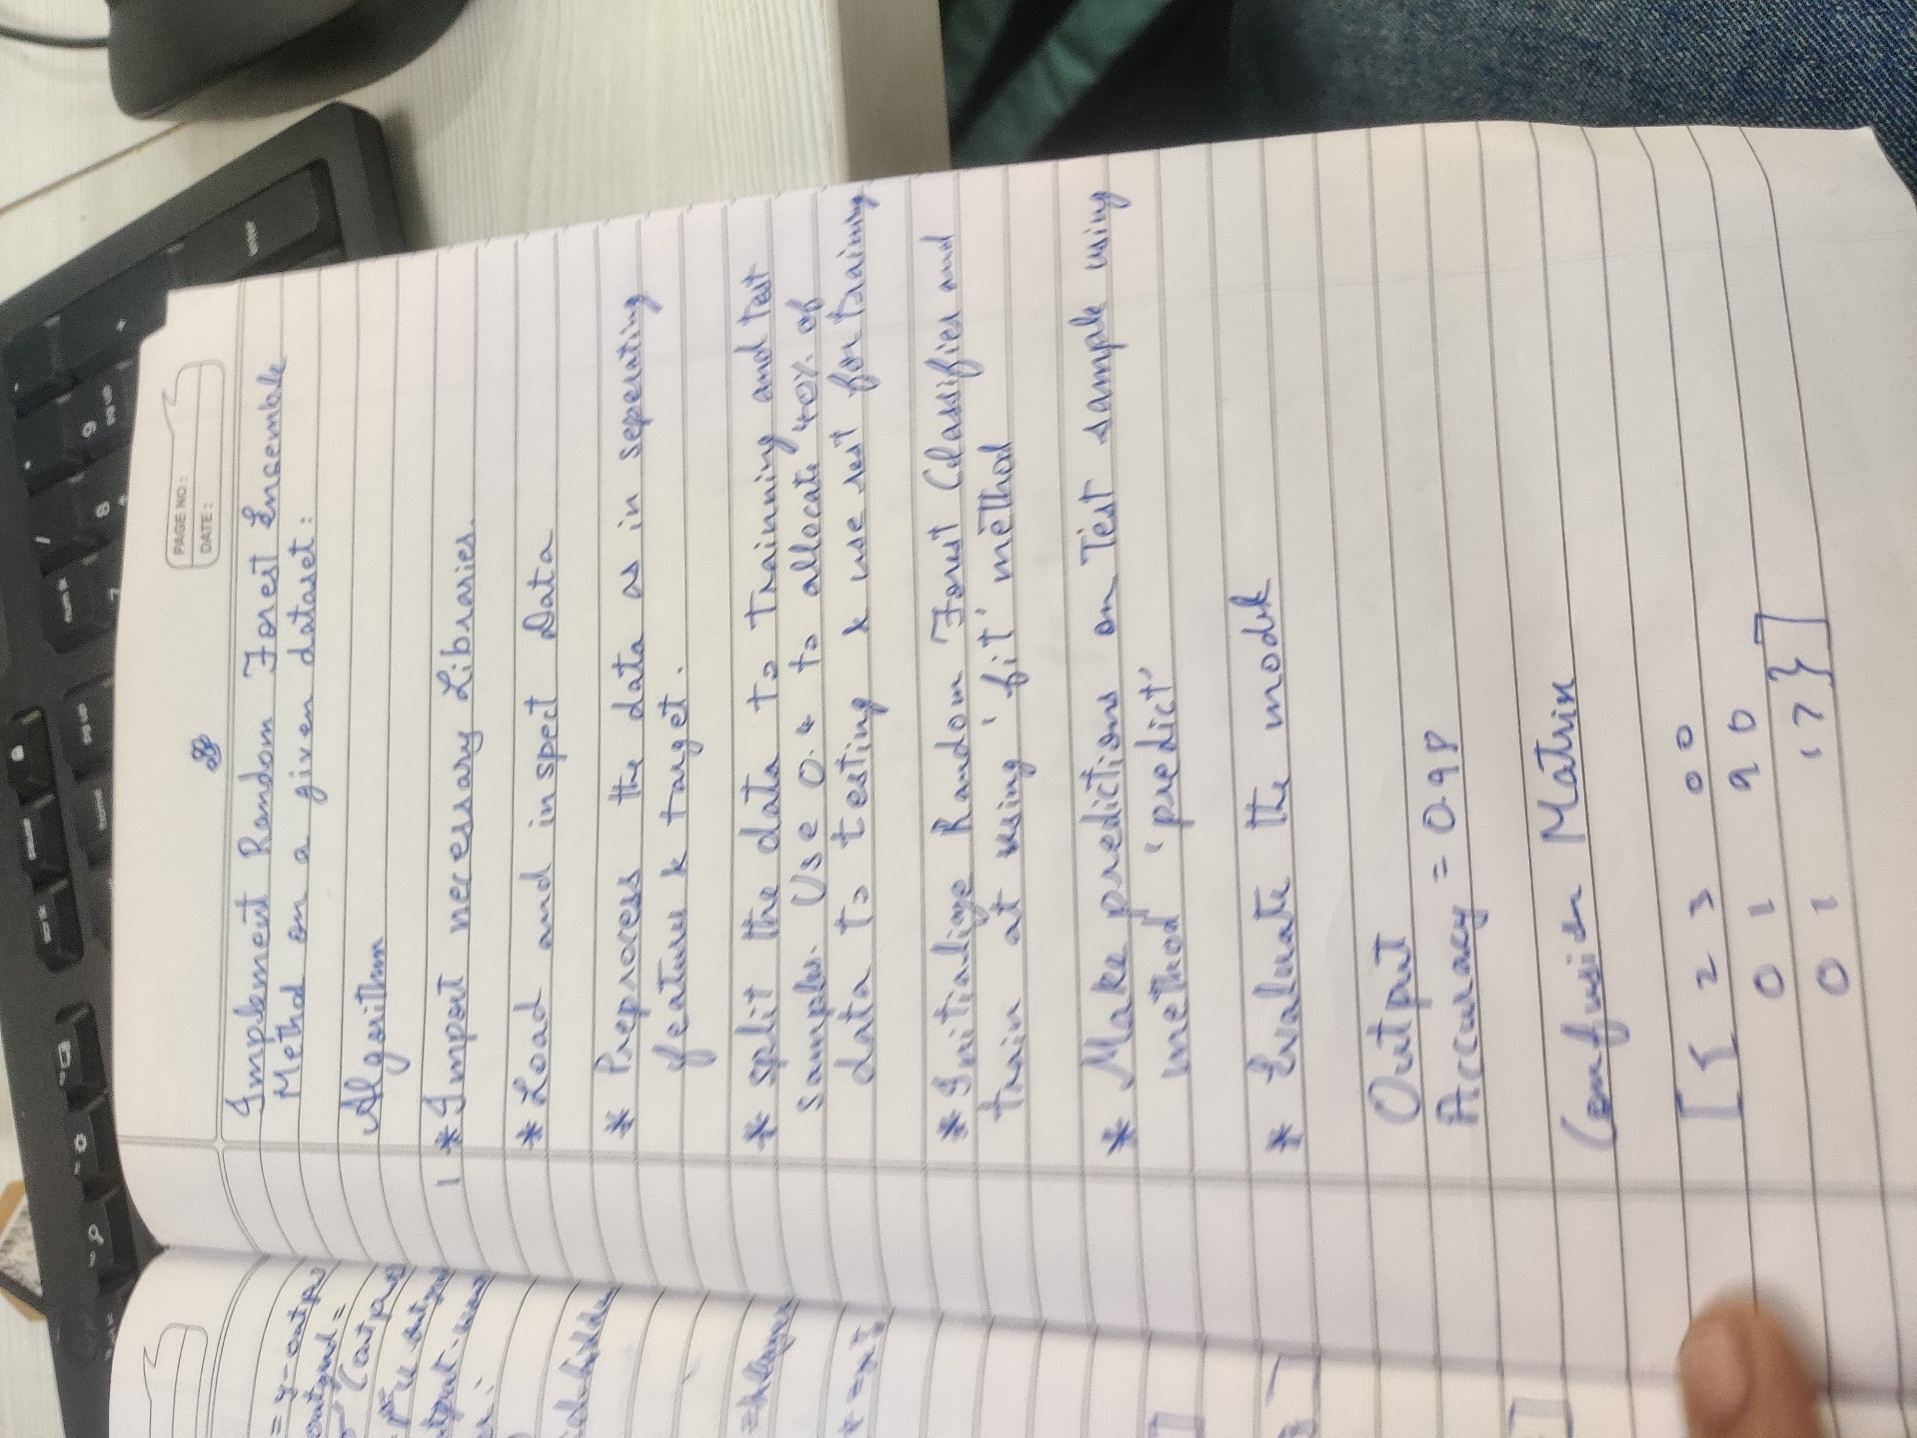 PAGE NO:
DATE:
Implement Random Forest Ensemble
Method on a given dataset:
Algorithm
* Import necessary Libraries.
* Load and inspect Data
* Preprocess the data as in seperating
feature & target.
* Split the data to Trainning and Test
samples. Use 0.4 to allocate 40% of
data to testing & use rest for training
* Initialize Random Forest Classifier and
train at using 'fit' method
* Make predictions on Test sample using
method 'predict'
* Evaluate the model
Output
Accuracy = 0.98
Confusion Matrix
[{ 23 0 0
0 1 9 0
0 1 17}]